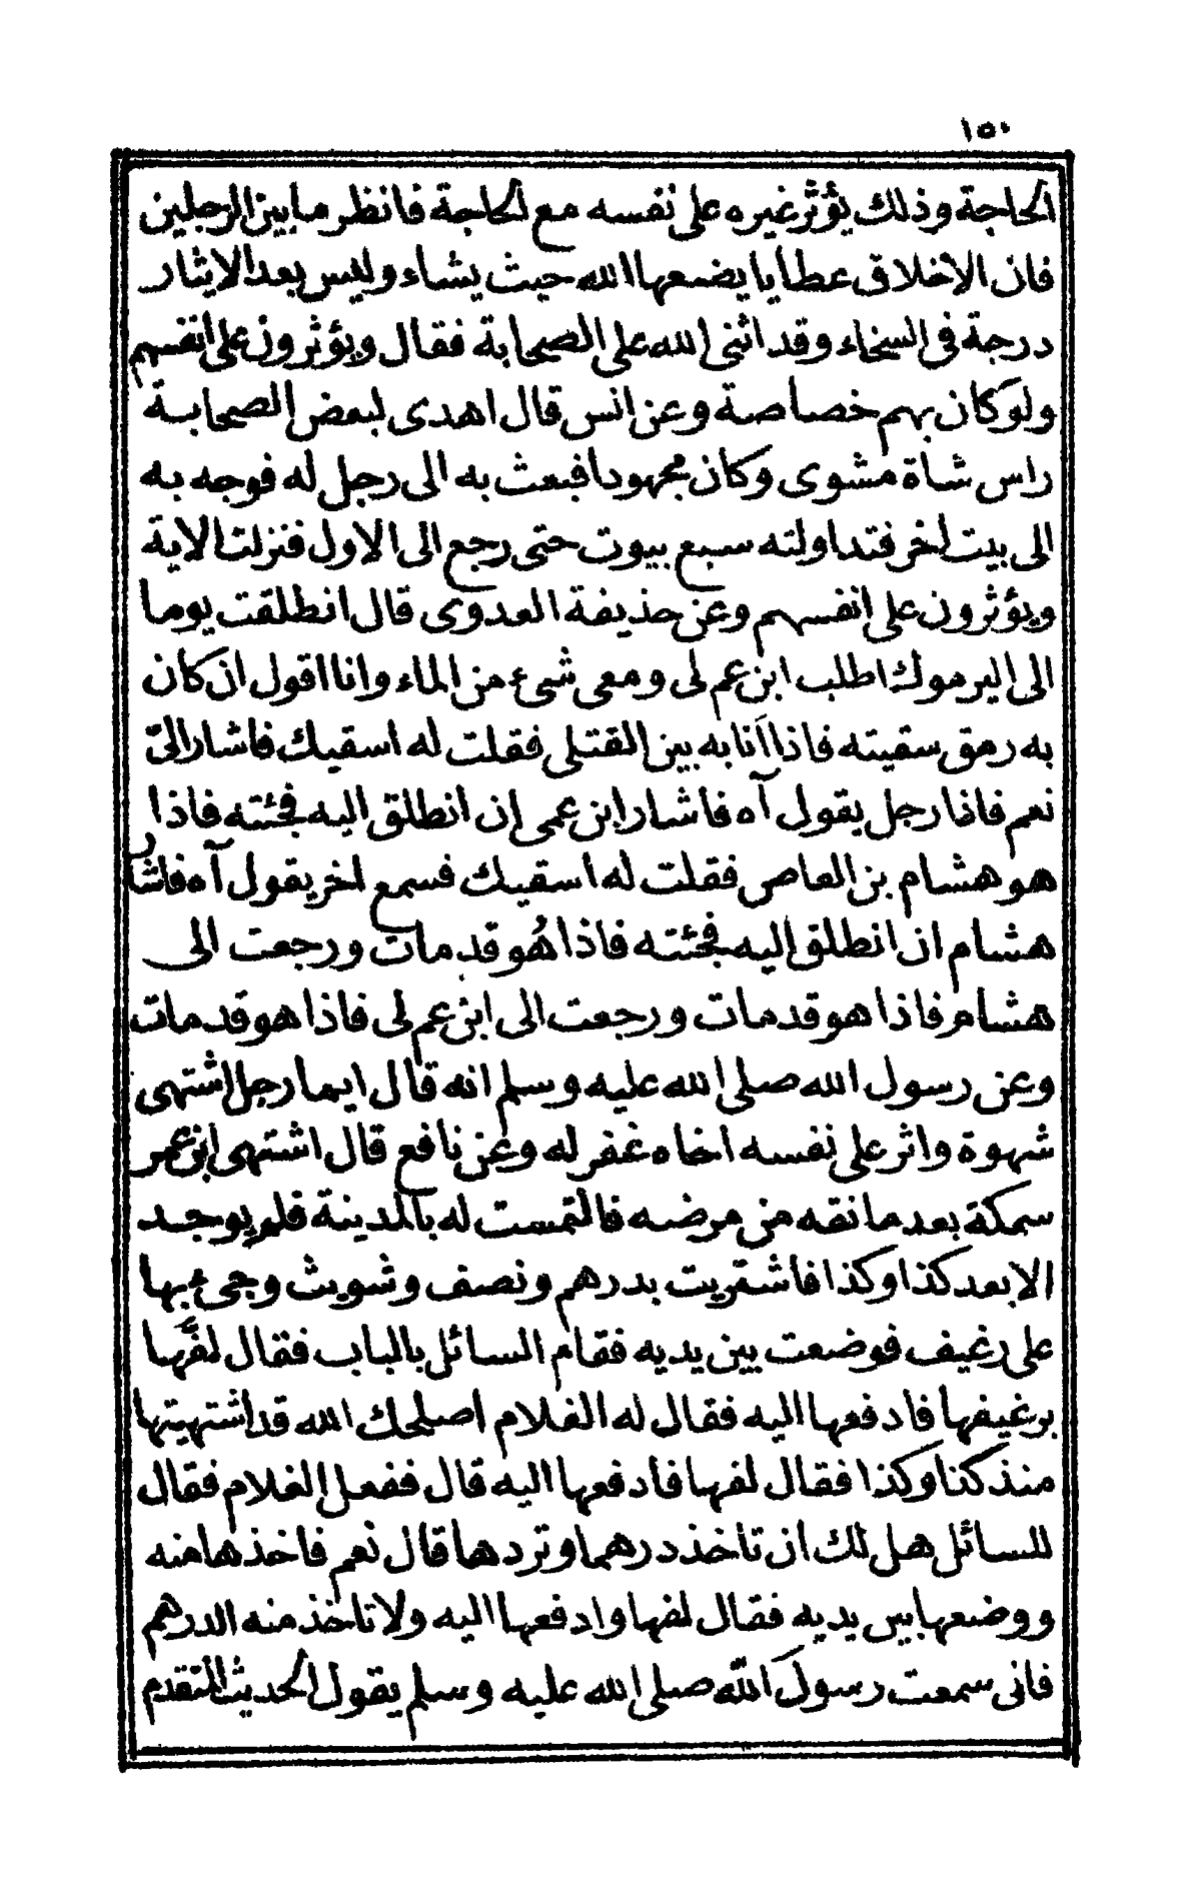 ١٥٠
الحاجة وذلك يؤثر غيره على نفسه مع الحاجة فانظر ما بين الرجلين
فان الاخلاق عطايا يضعها الله حيث يشاء وليس بعد الايثار
درجة في السخاء وقد اثنى الله على الصحابة فقال ويؤثرون على انفسهم
ولو كان بهم خصاصة وعن انس قال اهدى لبعض الصحابة
راس شاة مشوى وكان مجهودا فبعث به الى رجل له فوجه به
الى بيت اخر فتداولته سبع بيوت حتى رجع الى الاول فنزلت الاية
ويؤثرون على انفسهم وعن حذيفة العدوى قال انطلقت يوما
الى اليرموك اطلب ابن عم لى ومعى شئ من الماء وانا اقول ان كان
به رمق سقيته فاذا أنا به بين القتلى فقلت له اسقيك فاشار الىّ
نعم فاذا رجل يقول آه فاشار ابن عمى إن انطلق اليه فجئته فاذا
هو هشام بن العاص فقلت له اسقيك فسمع اخر يقول آه فاشار
هشام ان انطلق اليه فجئته فاذا هُو قد مات ورجعت الى
هشام فاذا هو قد مات ورجعت الى ابن عم لى فاذا هو قد مات
وعن رسول الله صلى الله عليه وسلم انه قال ايما رجل اشتهى
شهوة واثر على نفسه اخاه غفر له وعن نافع قال اشتهى ابن عمر
سمكة بعد ما نقه من مرضه فالتمست له بالمدينة فلم يوجد
الا بعد كذا وكذا فاشتريت بدرهم ونصف وشويت وجئ بها
على رغيف فوضعت بين يديه فقام السائل بالباب فقال لفَّها
برغيفها فادفعها اليه فقال له الغلام اصلحك الله قد اشتهيتها
منذ كذا وكذا فقال لفها فادفعها اليه قال ففعل الغلام فقال
للسائل هل لك ان تاخذ درهما وتردها قال نعم فاخذها منه
ووضعها بين يديه فقال لفها وادفعها اليه ولا تاخذ منه الدرهم
فانى سمعت رسولَ اللّه صلى الله عليه وسلم يقول الحديث المتقدم